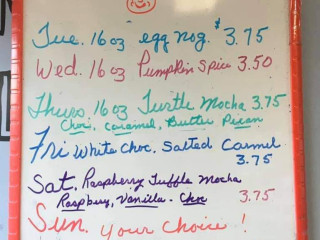 Tue. 16 oz egg nog. $3.75
Wed. 16 oz Pumpkin Spice 3.50
Thurs 16 oz Turtle Mocha 3.75
Choc, Caramel, Butter Pecan
Fri White Choc. Salted Carmel
3.75
Sat. Raspberry Tuffle Mocha
Raspbury, Vanilla - Choc 3.75
Sun. your Choice!